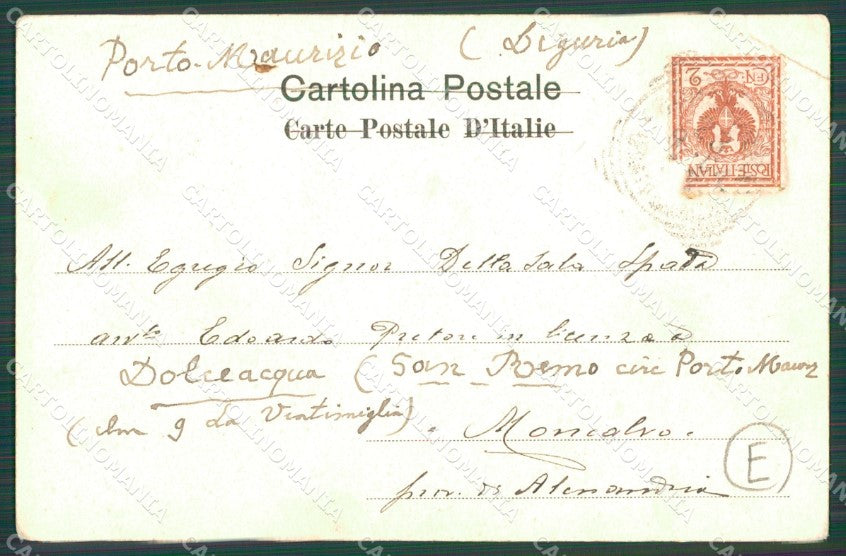 Porto-Maurizio ( Liguria)
Cartolina Postale
Carte Postale D'Italie
CEN. 2
POSTE ITALIAN
All. Egregio Signor Della Sala Spada
avvto Edoardo Pretore in licenza a
Dolceacqua ( San Remo circ Porto Maurz
(Km 9 da Ventimiglia)
Moncalvo.
prov. di Alessandria
E
CARTOLINOMANIA